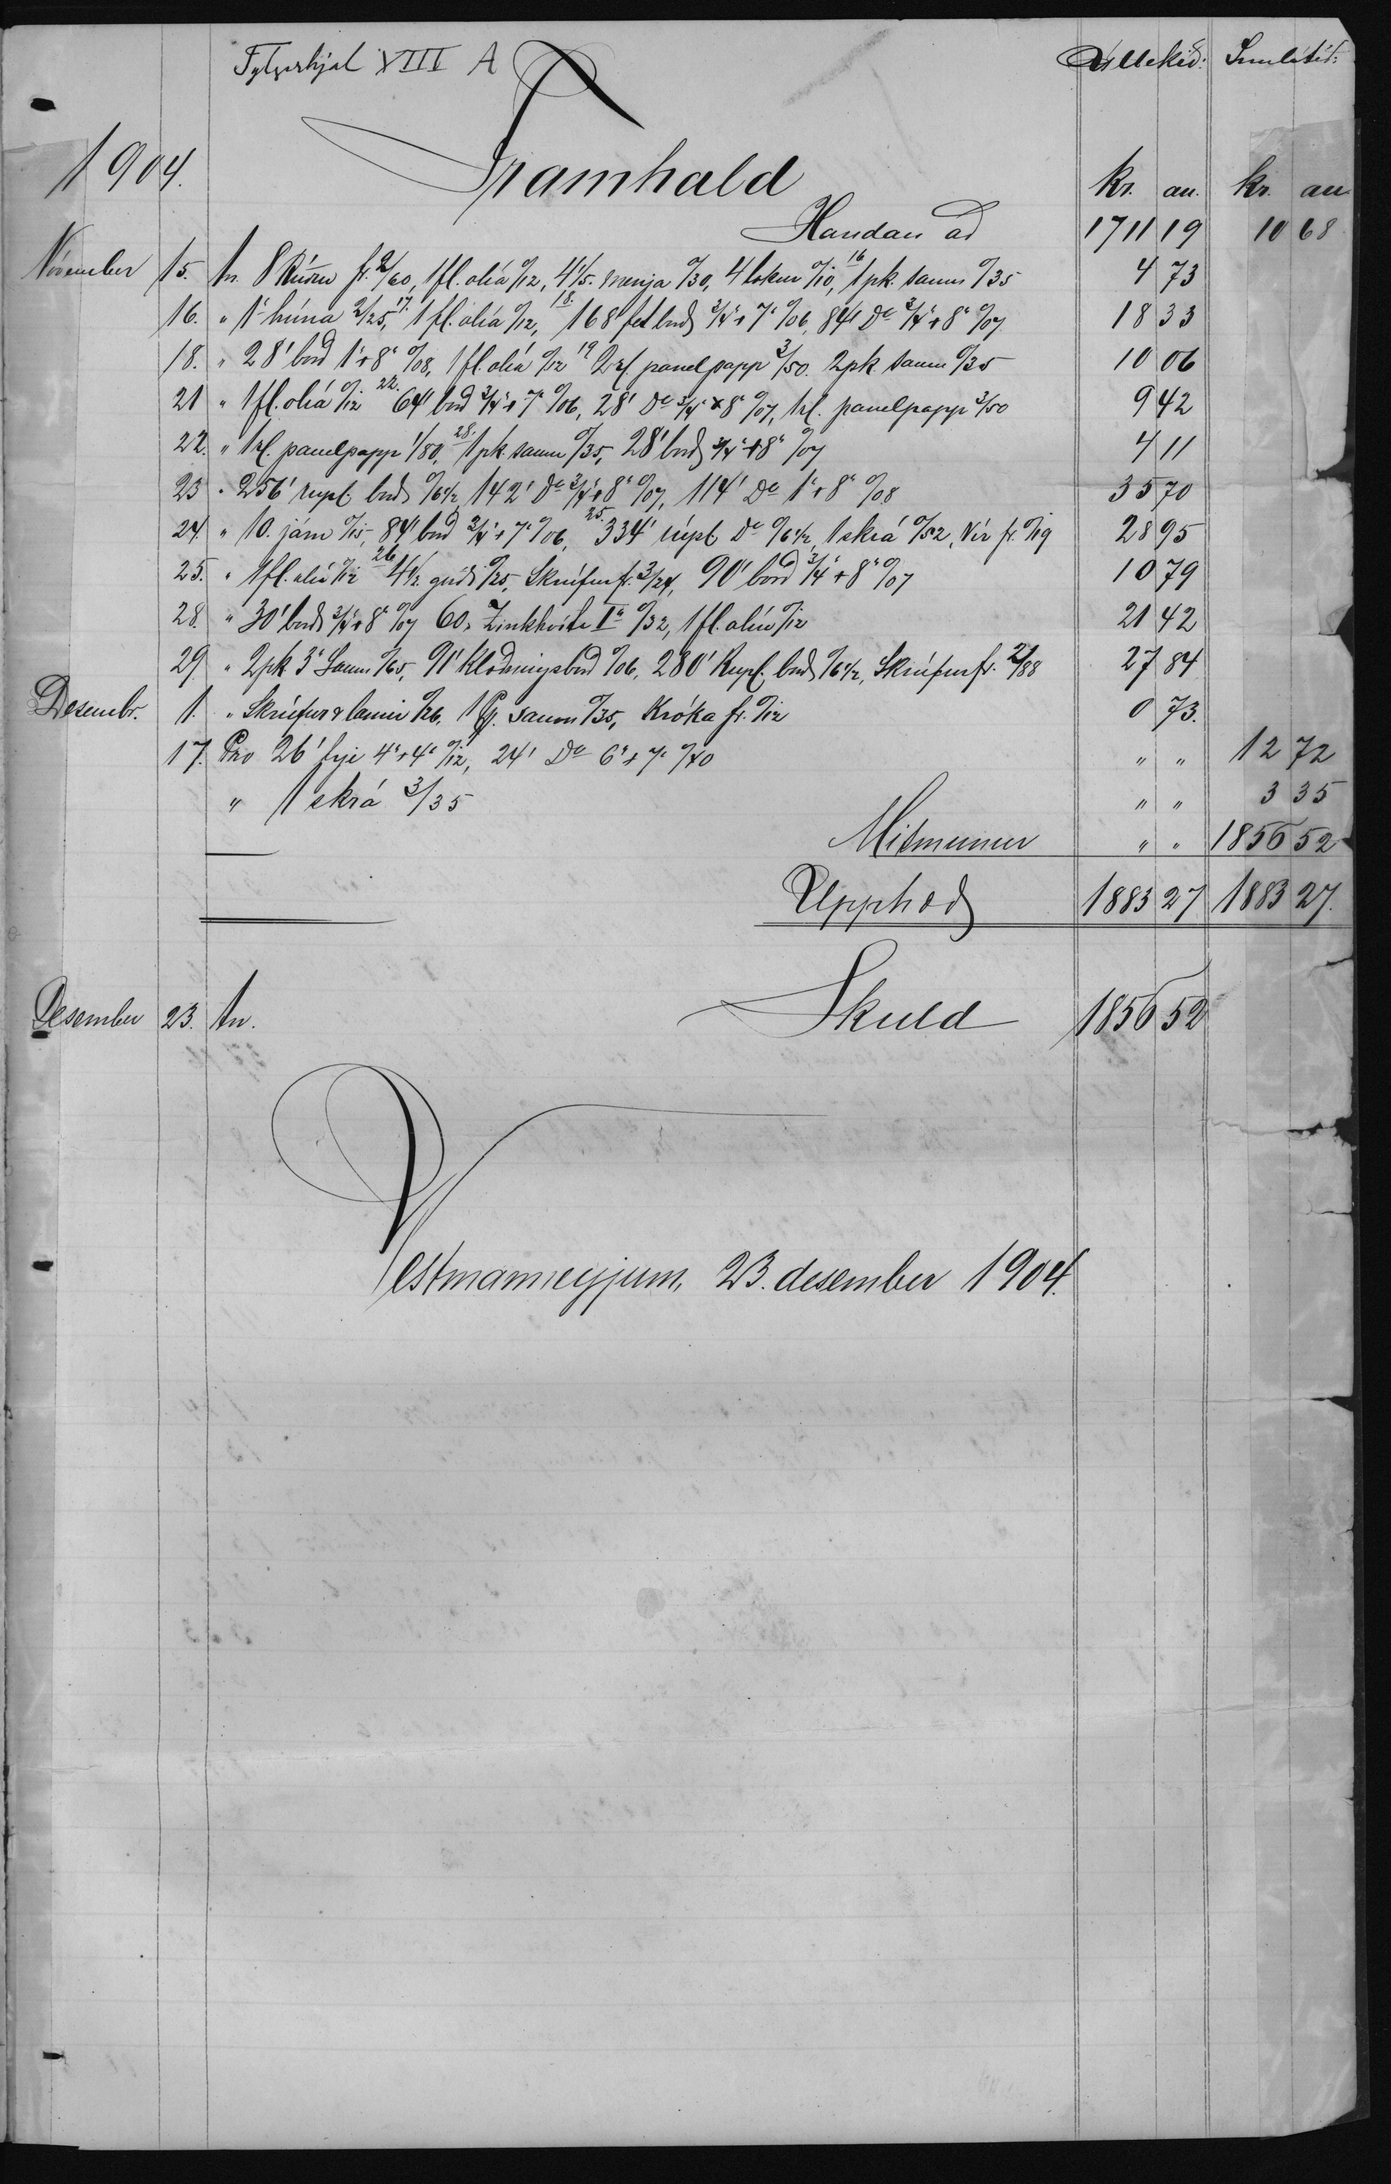 Fylgiskjal XIII A Úttekið: Innlátið:
1904. Framhald kr. au. kr. au
Handan að 1711 19 10 68
Nóvember 15. An 8 Rúður fr. 2/60, 1 fl. olía 0/12, 4 1/5. menja 0/30, 4 lokur 0/10, 16 1 pk. saum 0/35 4 73
16. " 1 húna 2/25, 17. 1 fl. olía 0/12, 18. 168 fet borð 3/4"+7" 0/06, 84' Do 3/4"+8" 0/07 18 33
18. " 28' borð 1"+8" 0/08, 1 fl. olía 0/12 19 2 rl. panelpapp 3/50. 2 pk saum 0/35 10 06
21 " 1 fl. olía 0/12 22. 64' borð 3/4"+7" 0/06, 28' Do 3/4"x8" 0/07, 1 rl. panelpapp 3/50 9 42
22. " 1 rl. panelpapp 1/80, 28. 1 pk saum 0/35, 28' borð 3/4"+8" 0/07 4 11
23 " 256' rupl. borð 0/6 1/2, 142' Do 3/4"+8" 0/07, 114' Do 1"+8" 0/08 35 70
24. " 10. járn 0/15, 84' borð 3/4"+7" 0/06, 25. 334' rúpl Do 0/6 1/2, 1 skrá 0/52, Vír fr. 0/19 28 95
25. " 1 fl. olía 0/12 26 4 1/2 0/25, Skrúfur fr. 3/24, 90' borð 3/4"+8" 0/07 10 79
28. " 30' borð 3/4"+8" 0/07 60. Zinkhvíta Ia 0/32, 1 fl. olía 0/12 21 42
29 " 2 pk 3" Saum 0/65, 91' Klæðningsborð 0/06, 280' Rupl. borð 0/6 1/2, Skrúfur fr. 2/88 27 84
Desembr. 1. " Skrúfur & lamir 0/26, 1 saum 0/35, Króka fr. 0/12 0 73.
17. Pro 26' tré 4"+4" 0/12, 24' Do 6"+7" 0/40 " " 12 72
" 1 skrá 3/35 " " 3 35
Mismunur " " 1856 52
Upphæð 1883 27 1883 27.
Desember 23. An. Skuld 1856 52
Vestmanneyjum, 23. desember 1904.